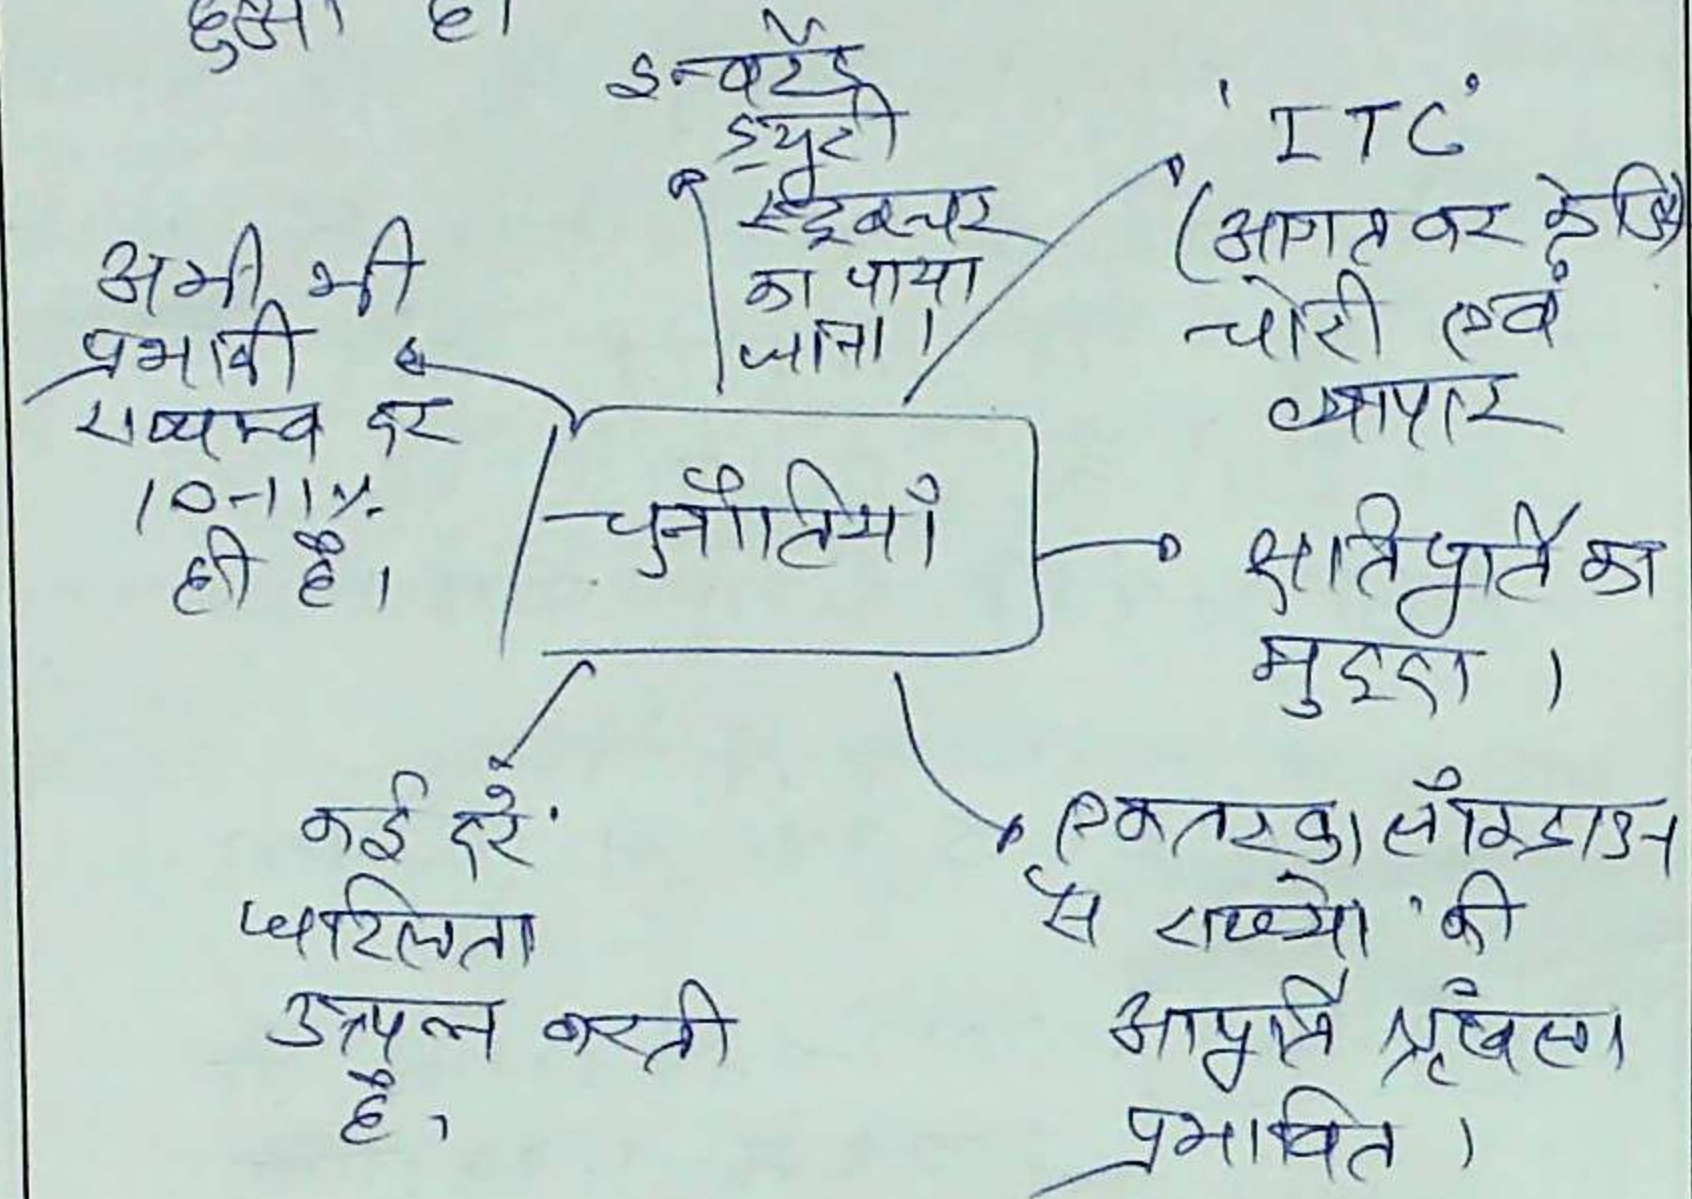 हुआ है।
इन्वर्टेड
ड्यूटी
स्ट्रक्चर
का पाया
जाना।
'ITC'
(आगत कर क्रेडिट)
चोरी एवं
व्यापार
अभी भी
प्रभावी
राजस्व दर
10-11%
ही है।
चुनौतियाँ
क्षतिपूर्ति का
मुद्दा।
कई दरें
जटिलता
उत्पन्न करती
है।
एकतरफा लॉकडाउन
से राज्यों की
आपूर्ति श्रृंखला
प्रभावित।